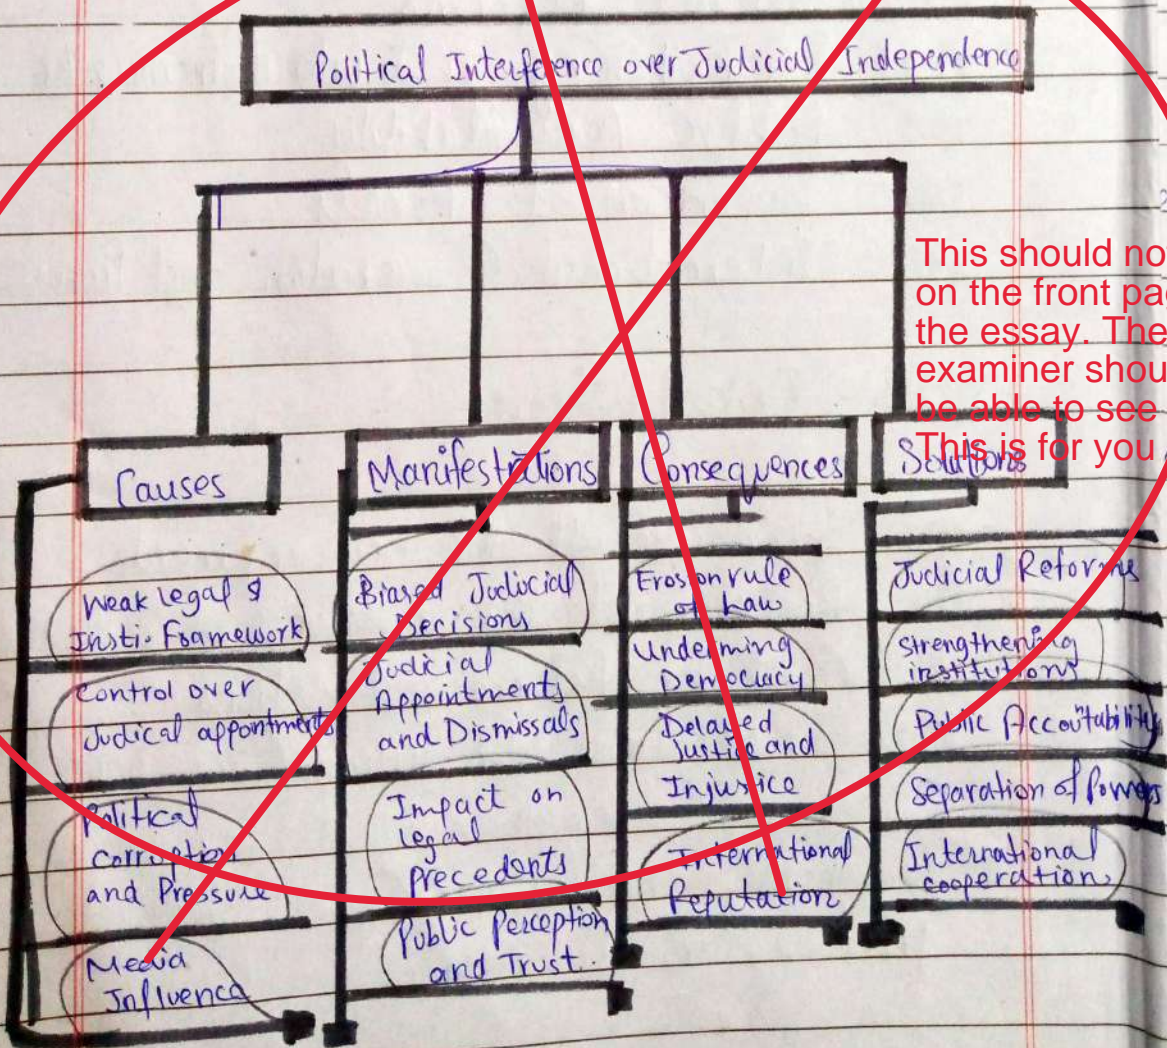 Political Interference over Judicial Independence
This should no
on the front pa
the essay. The
examiner shou
be able to see
This is for you
Causes
Weak legal &
Insti. Framework
Control over
Judical appointments
Political
corruption
and Pressure
Media
Influence
Manifestrations
Biased Judicial
Decisions
Judicial
Appointments
and Dismissals
Impact on
legal
Precedents
Public Perception
and Trust.
Consequences
Erosion rule
of Law
Underming
Democracy
Delayed
Justice and
Injustice
International
Reputation
Solutions
Judicial Reforms
Strengthening
institutions
Public Accoutability
Separation of Powers
International
cooperation